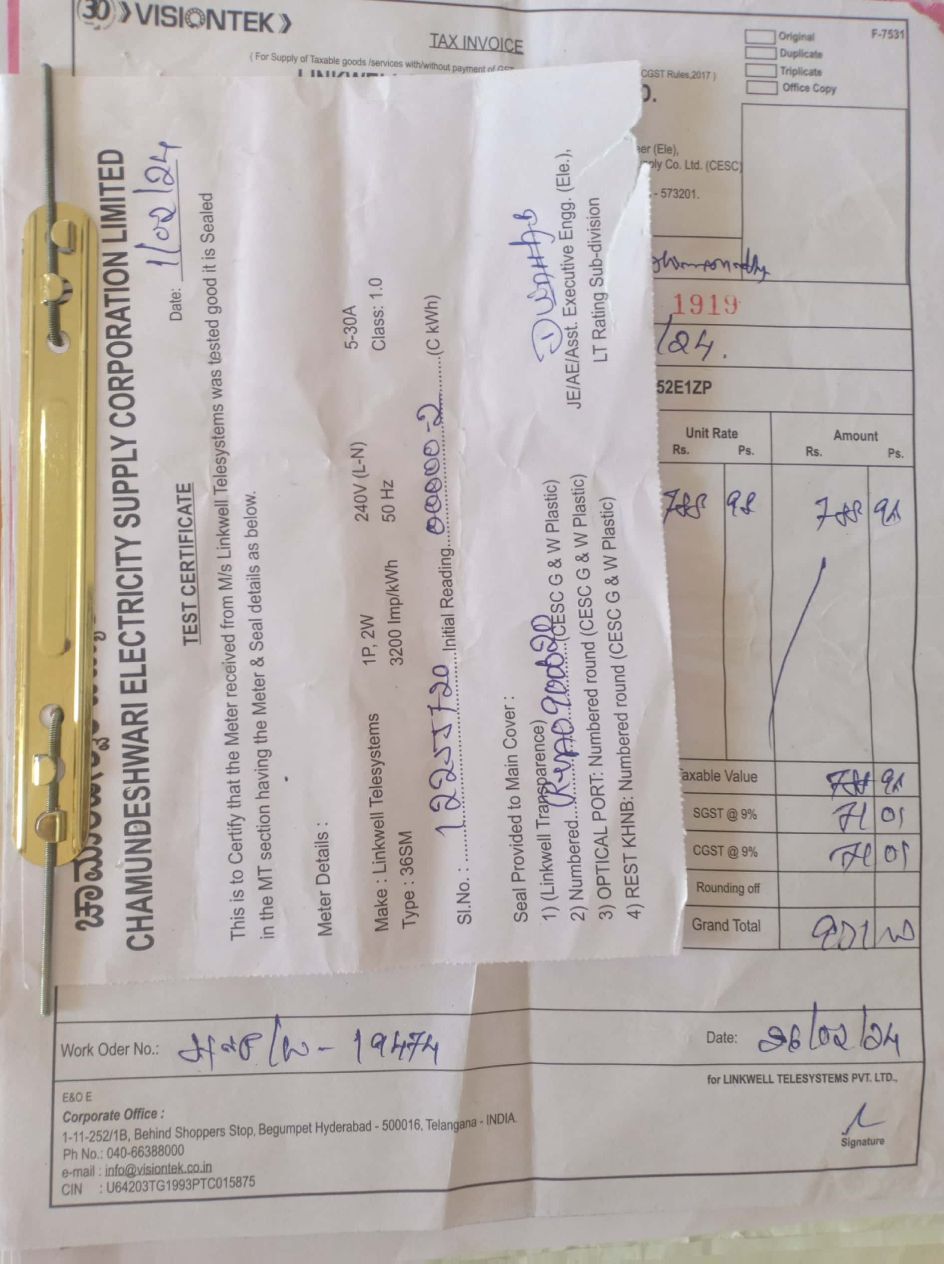 30 VISIONTEK
TAX INVOICE
( For Supply of Taxable goods /services with/without payment of
CGST Rules,2017 )
Original
Duplicate
Triplicate
Office Copy
F-7531
LINKWEL
D.
er (Ele),
ply Co. Ltd. (CESC)
- 573201.
1919
/24.
52E1ZP
Unit Rate
Rs. Ps.
Amount
Rs. Ps.
788 98
788 98
axable Value
SGST @ 9% 71 01
CGST @ 9% 71 01
Rounding off
Grand Total
Work Oder No.: - 19474
Date: 26/02/24
for LINKWELL TELESYSTEMS PVT. LTD.,
Signature
E&O E
Corporate Office :
1-11-252/1B, Behind Shoppers Stop, Begumpet Hyderabad - 500016, Telangana - INDIA.
Ph No.: 040-66388000
e-mail : info@visiontek.co.in
CIN : U64203TG1993PTC015875
CHAMUNDESHWARI ELECTRICITY SUPPLY CORPORATION LIMITED
Date: 1/02/24
TEST CERTIFICATE
This is to Certify that the Meter received from M/s Linkwell Telesystems was tested good it is Sealed
in the MT section having the Meter & Seal details as below.
Meter Details :
Make : Linkwell Telesystems 1P, 2W 240V (L-N) 5-30A
Type : 36SM 3200 Imp/kWh 50 Hz Class: 1.0
Sl.No. : 12255720 Initial Reading 00000-2 (C kWh)
Seal Provided to Main Cover :
1) (Linkwell Transparence)
2) Numbered (CESC G & W Plastic)
3) OPTICAL PORT: Numbered round (CESC G & W Plastic)
4) REST KHNB: Numbered round (CESC G & W Plastic)
JE/AE/Asst. Executive Engg. (Ele.),
LT Rating Sub-division